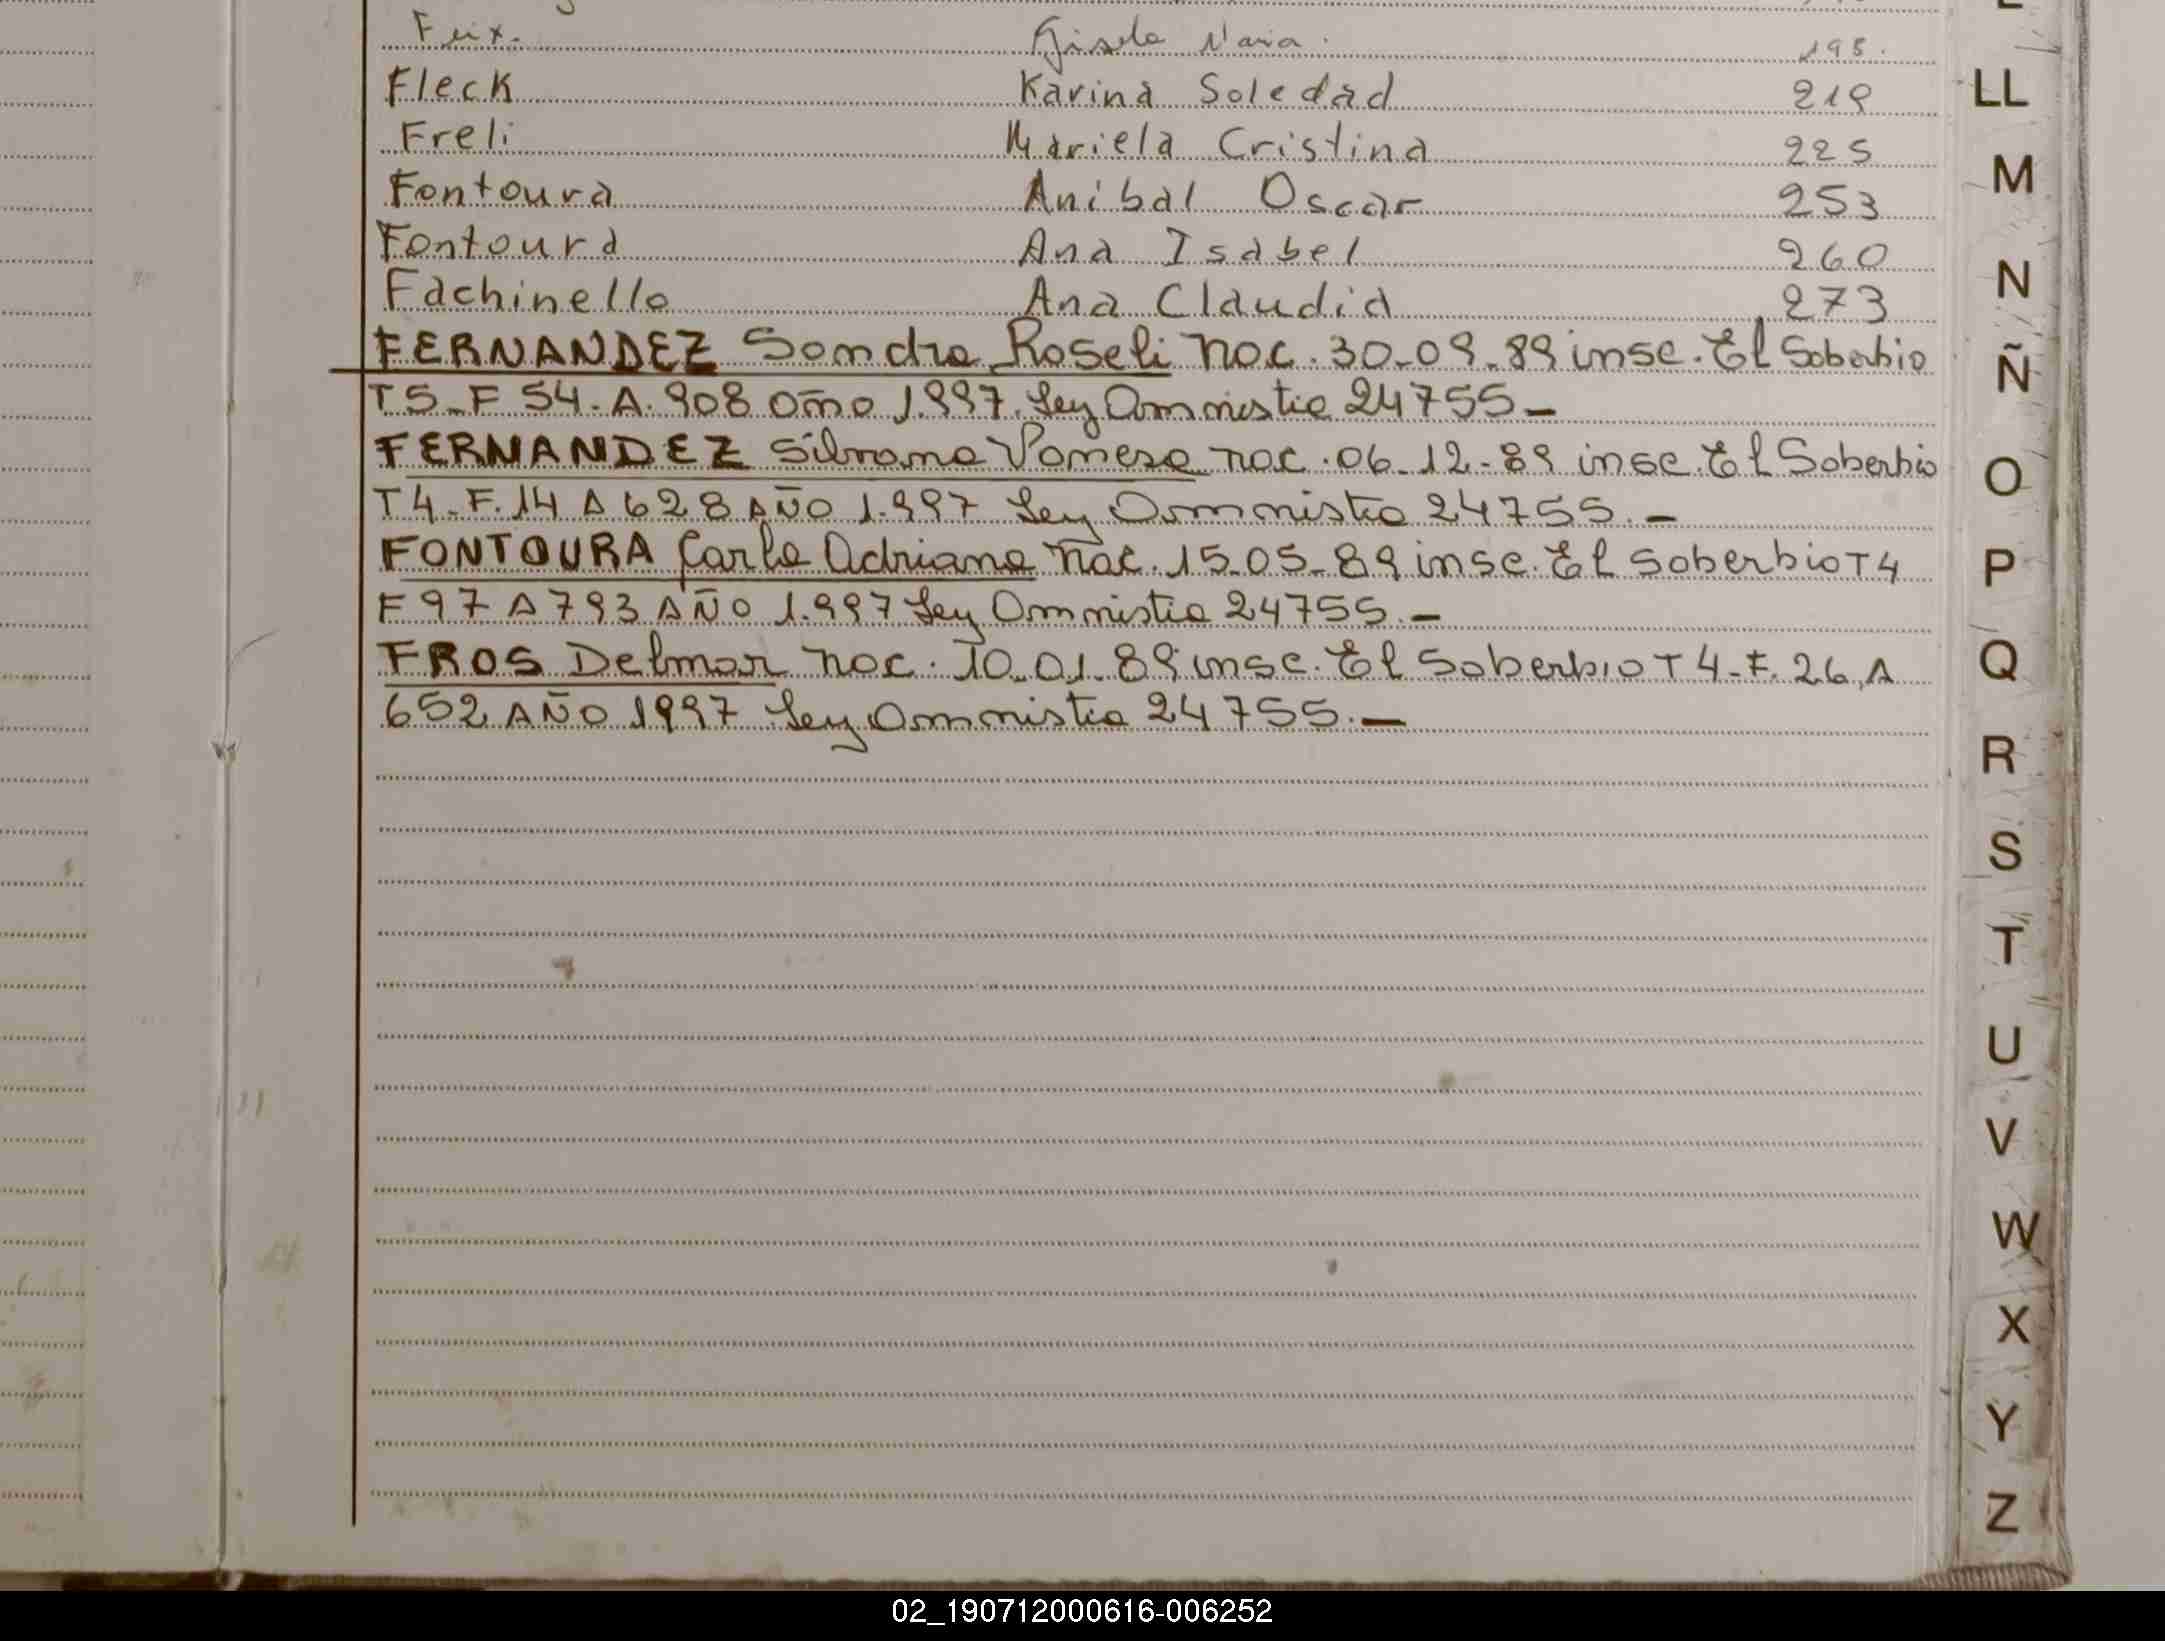 Feix. Gisela Maria. 195.
Fleck Karina Soledad 219
Freli Mariela Cristina 225
Fontoura Anibal Oscar 253
Fontoura Ana Isabel 260
Fachinello Ana Claudia 273
FERNANDEZ Sandra Roseli nac. 30-09-89 insc. El Soberbio
T5-F 54-A. 908 año 1.997. Ley Amnistia 24755-
FERNANDEZ Silvana Vanesa nac. 06-12-89 insc. El Soberbio
T4-F.14 A 628 AÑO 1.997 Ley Ammistia 24755.-
FONTOURA Carla Adriana nac. 15-05-89 insc. El Soberbio T4
F97 A793 AÑO 1.997 Ley Ammistia 24755.-
FROS Delmar nac. 10-01-89 insc. El Soberbio T4-F. 26 A
652 AÑO 1997 Ley Ammistia 24755.-
LL
M
N
Ñ
O
P
Q
R
S
T
U
V
W
X
Y
Z
02_190712000616-006252